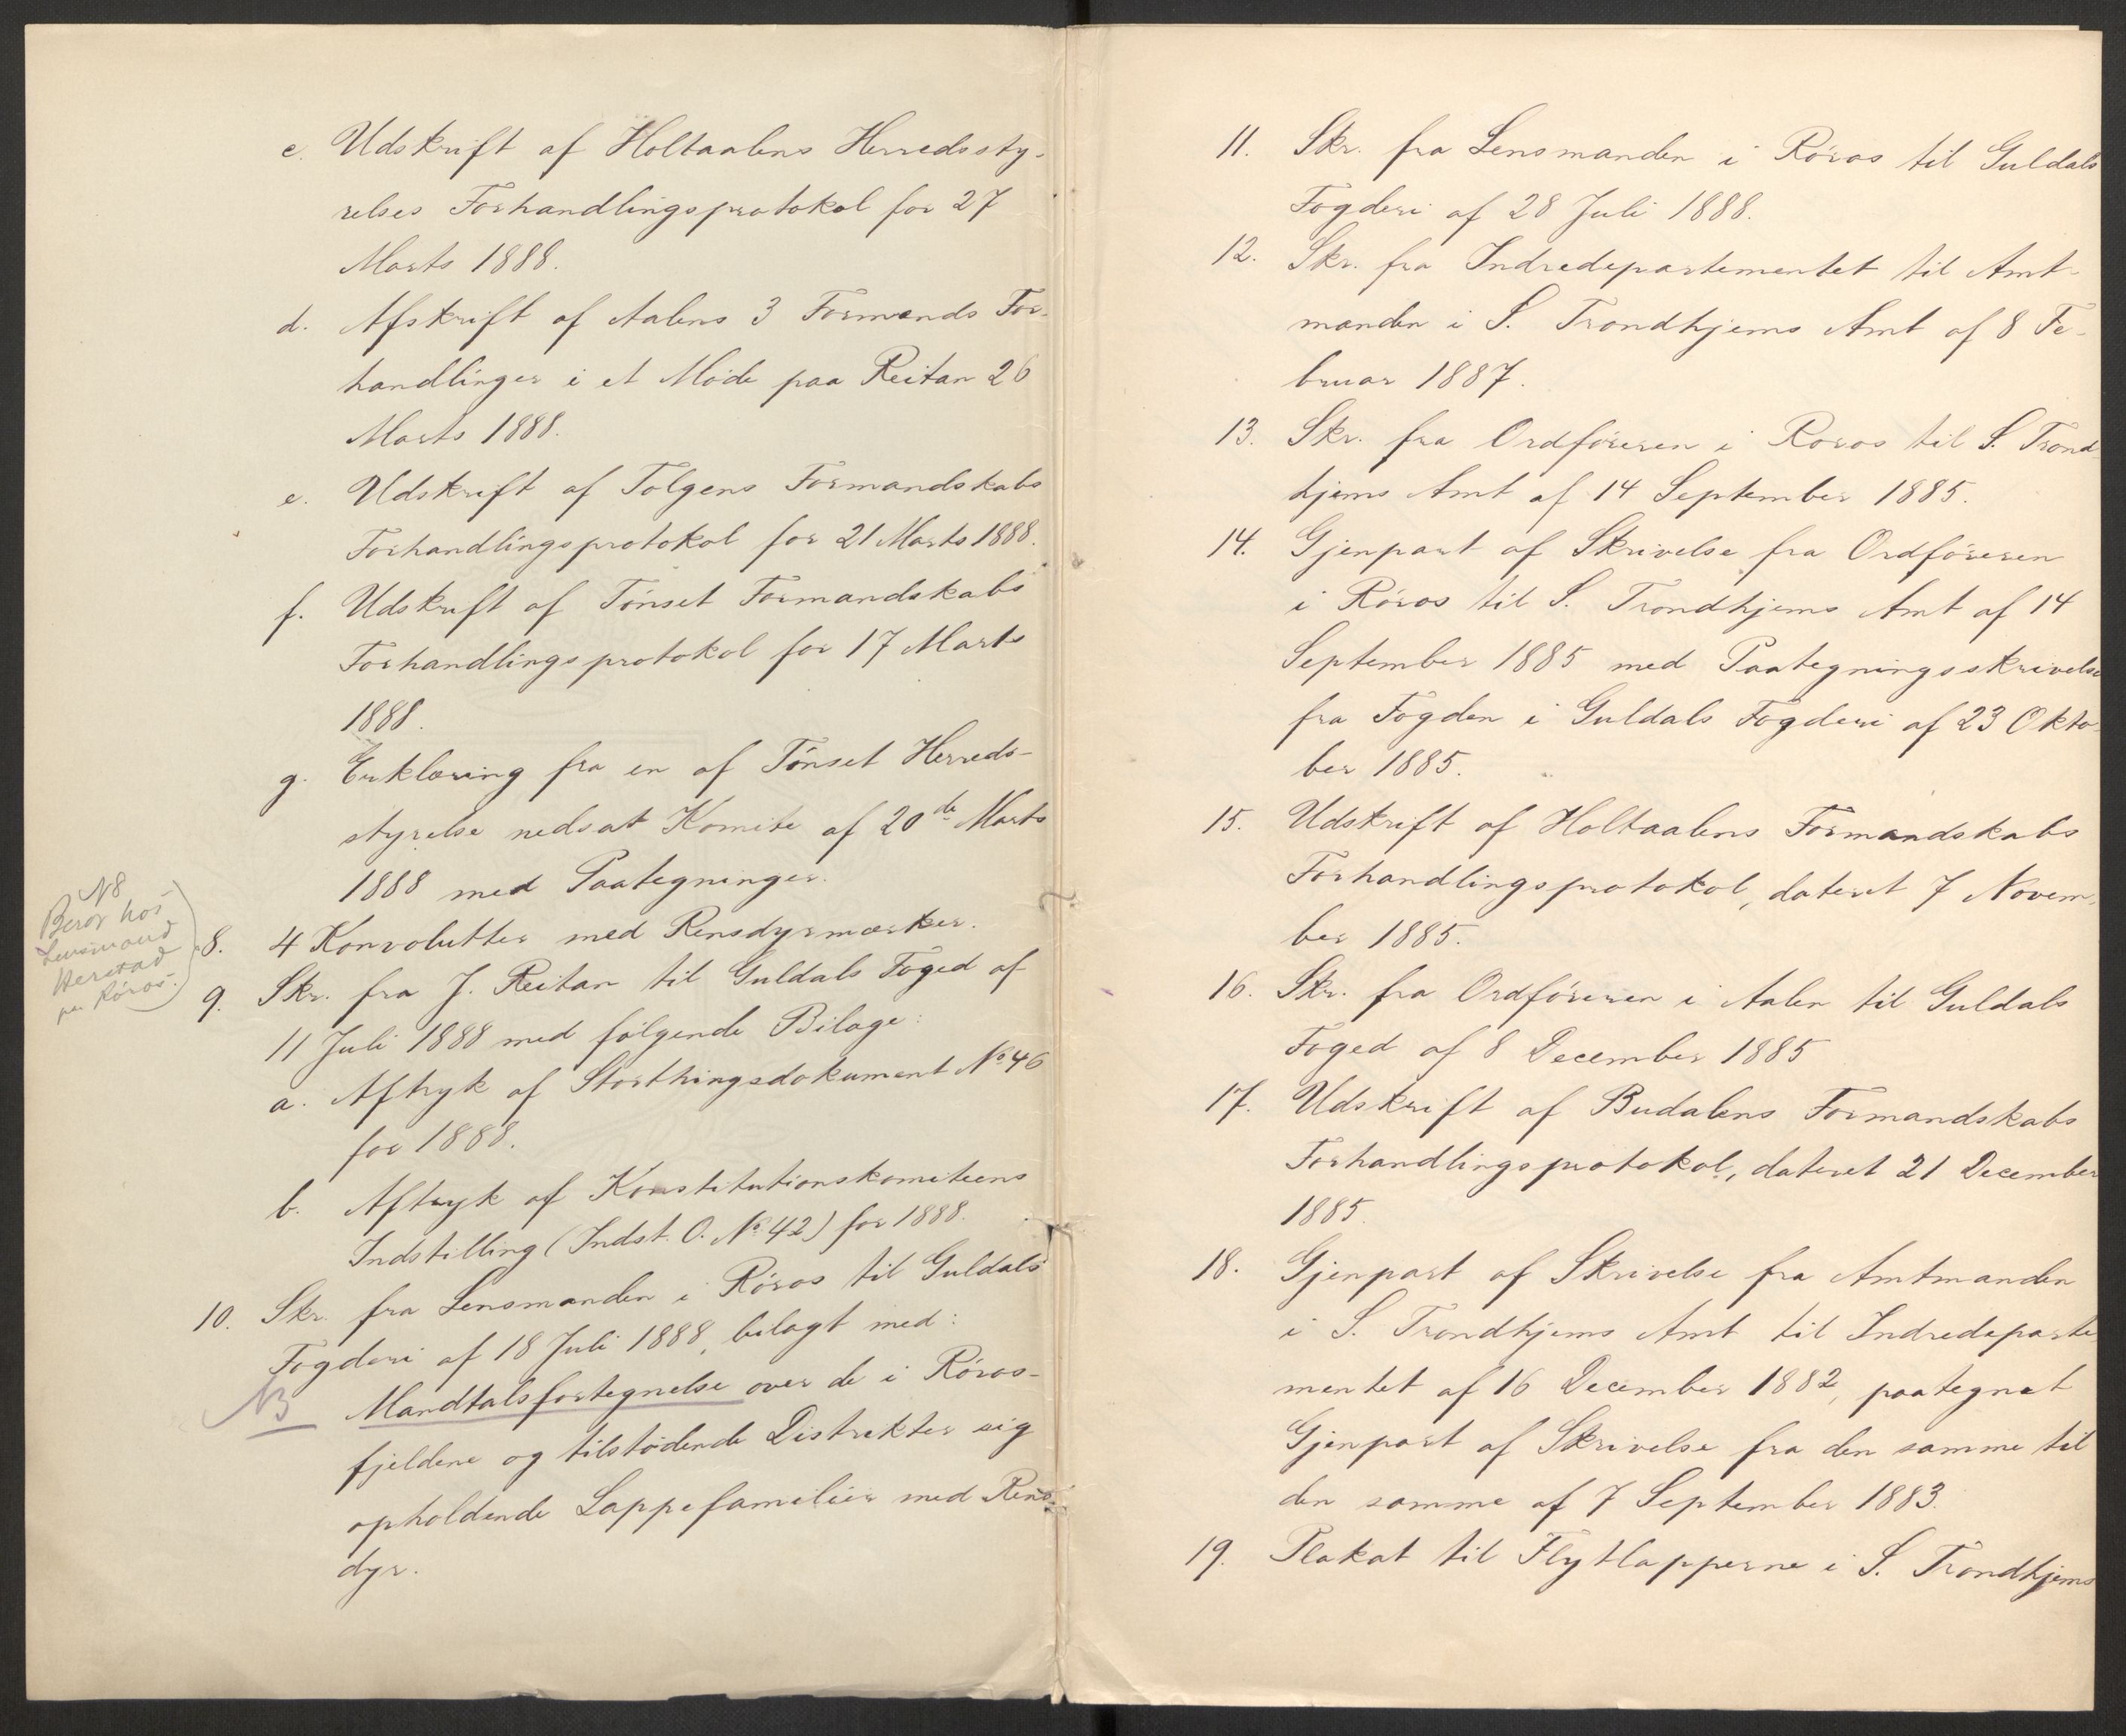 c. Udskrift af Holtaalens Herredssty-
relses Forhandlingsprotokol for 27
Marts 1888.
d. Afskrift af Aalens 3 Formænds For-
handlinger i et Møde paa Reitan 26
Marts 1888.
e. Udskrift af Tolgens Formandskabs
Forhandlingsprotokol for 21 Marts 1888.
f. Udskrift af Tönset Formandskabs
Forhandlingsprotokol for 17 Marts
1888.
g. Erklæring fra en af Tönset Herreds-
styrelse nedsat Komite af 20de Marts
1888 med Paategninger.
N8
Beror hos
Lensmand
Herstad
pr. Røros.
8. 4 Konvolutter med Rensdyrmærker.
9. Skr. fra J. Reitan til Guldals Foged af
11 Juli 1888 med følgende Bilage:
a. Aftryk af Storthingsdokument No. 46
for 1888.
b. Aftryk af Konstitutionskomiteens
Indstilling (Indst. O. No. 42) for 1888.
10. Skr. fra Lensmanden i Röros til Guldals
Fogderi af 18 Juli 1888, bilagt med:
NB Mandtalsfortegnelse over de i Röros-
fjeldene og tilstödende Distrikter sig
opholdende Lappefamilier med Rens-
dyr.
11. Skr. fra Lensmanden i Röros til Guldals
Fogderi af 28 Juli 1888.
12. Skr. fra Indredepartementet til Amt-
manden i S. Trondhjems Amt af 8 Fe-
bruar 1887.
13. Skr. fra Ordföreren i Roros til S. Trond
hjems Amt af 14 September 1885.
14. Gjenpart af Skrivelse fra Ordföreren
i Röros til S. Trondhjems Amt af 14
September 1885 med Paategningsskrivelse
fra Fogden i Guldals Fogderi af 23 Okto-
ber 1885.
15. Udskrift af Holtaalens Formandskabs
Forhandlingsprotokol, dateret 7 Novem-
ber 1885.
16. Skr. fra Ordföreren i Aalen til Guldals
Foged af 8 December 1885
17. Udskrift af Budalens Formandskabs
Forhandlingsprotokol, dateret 21 December
1885.
18. Gjenpart af Skrivelse fra Amtmanden
i S. Trondhjems Amt til Indredeparte
mentet af 16 December 1882, paategnet
Gjenpart af Skrivelse fra den samme til
den samme af 7 September 1883.
19. Plakat til Flytlapperne i S. Trondhjems